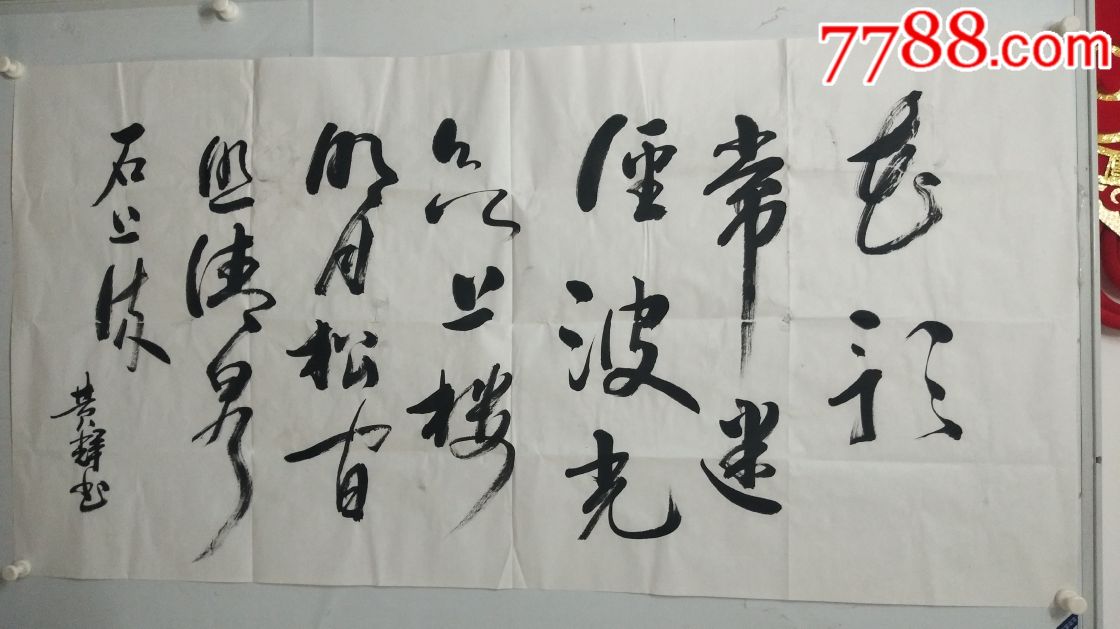 7788.com
花影
常迷
徑波光
欲上楼
明月松间
照清泉
石上流
黄辉书